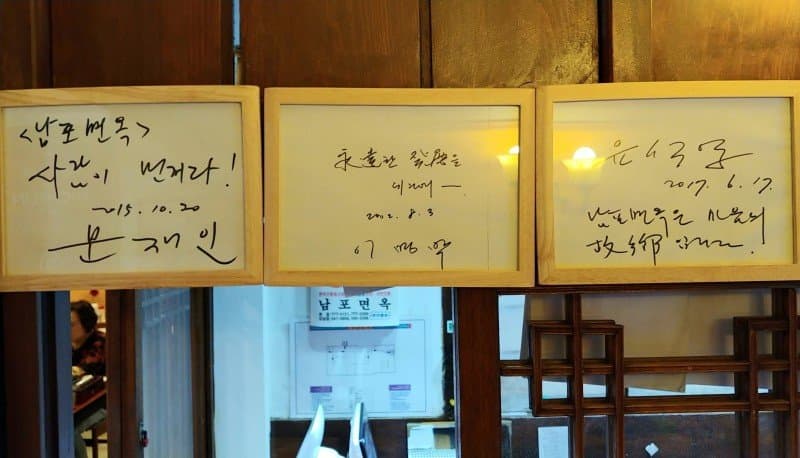 <남포면옥>
사람이 먼저다!
2015. 10. 20
문재인
永遠한 發展을
2012. 8. 3
이명박
2017. 6. 17.
남포면옥은 마음의
故鄕입니다!
남포면옥